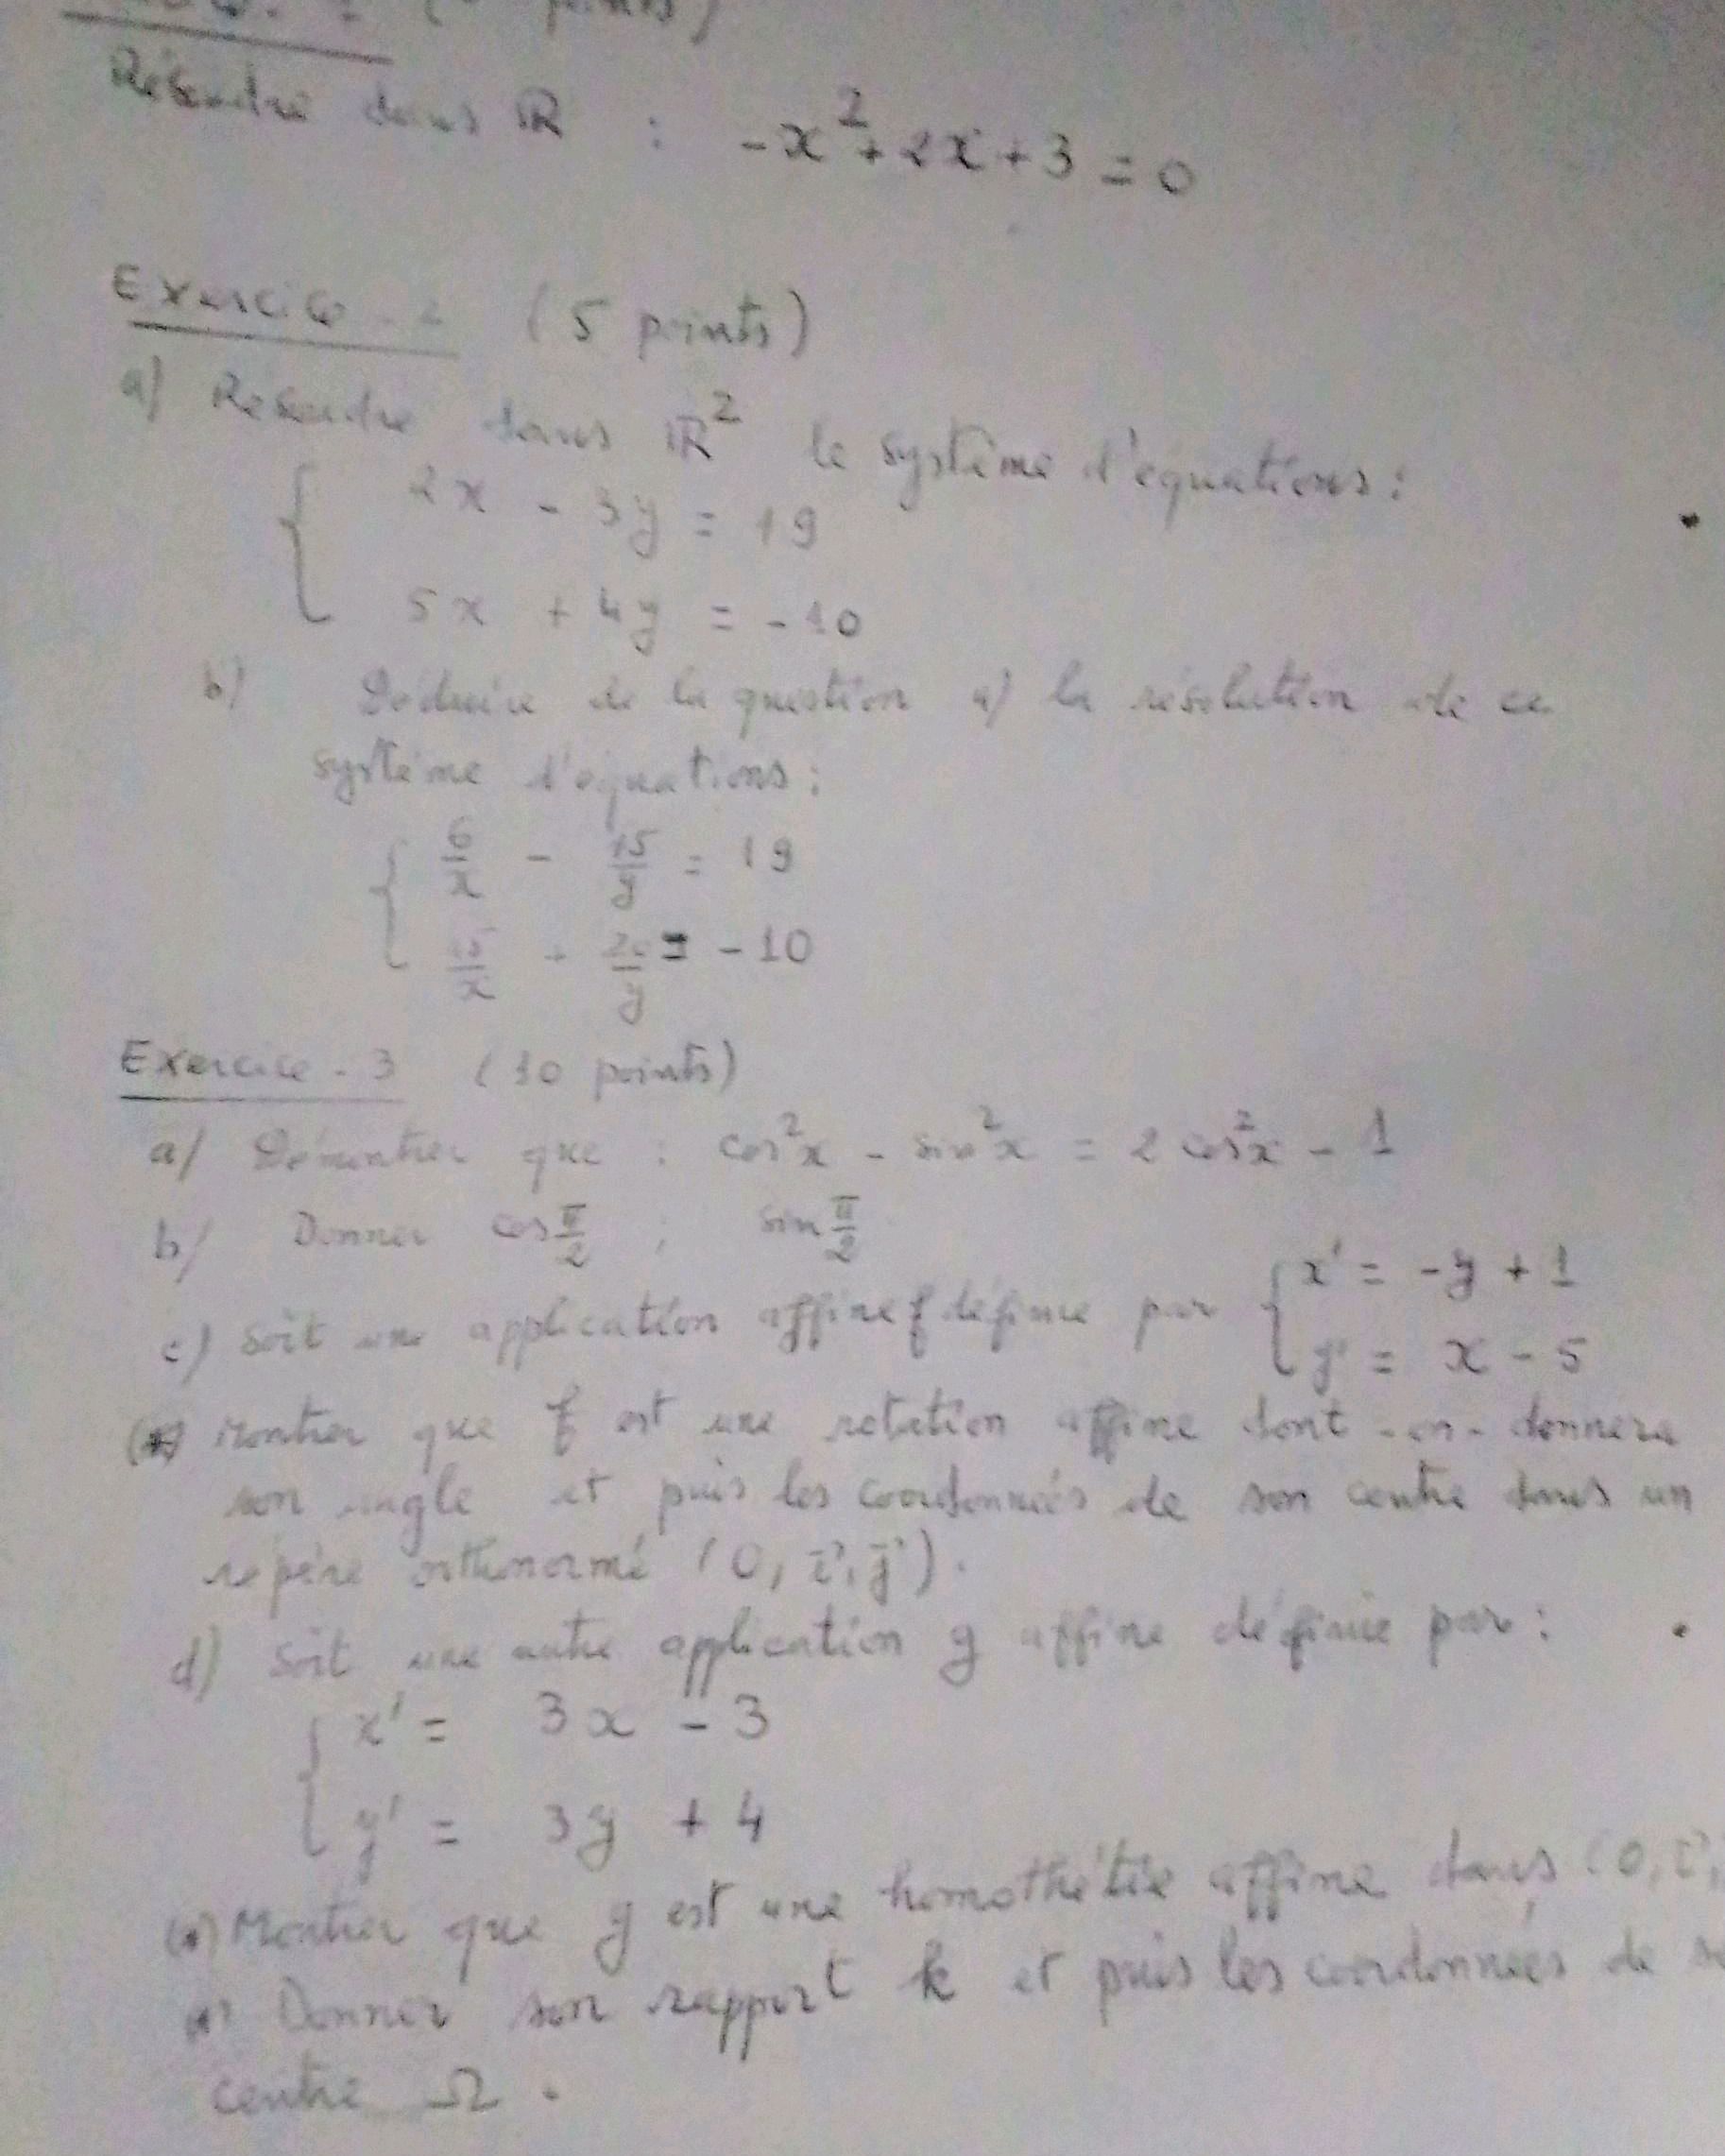 points)
Résoudre dans ℝ : -x² + 2x + 3 = 0
Exercice - 2 (5 points)
a) Résoudre dans ℝ² le système d'équations :
{ 2x - 3y = 19
5x + 4y = -10
b) Déduire de la question a) la résolution de ce
système d'équations :
{ 6/x - 15/y = 19
15/x + 20/y = -10
Exercice - 3 (10 points)
a/ Démontrer que : cos²x - sin²x = 2 cos²x - 1
b/ Donner cos π/2 ; sin π/2
c) Soit une application affine f définie par { x' = -y + 1
y' = x - 5
Montrer que f est une rotation affine dont -on- donnera
son angle et puis les coordonnées de son centre dans un
repère orthonormé (O, i⃗, j⃗).
d) Soit une autre application g affine définie par :
{ x' = 3x - 3
y' = 3y + 4
Montrer que g est une homothétie affine dans (O, i⃗,
Donner son rapport k et puis les coordonnées de
centre Ω.